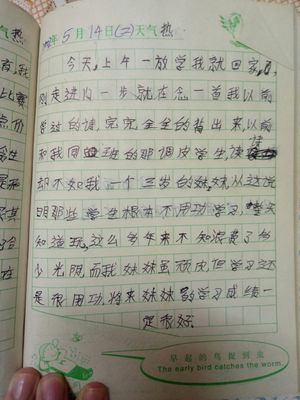 年5月14日(二)天气热
今天,上午一放学我就回家,
刚走进内一步就在念一首我以前
学过的诗,完完全全的背出来,以前
和我同班的那调皮学生,读
却不如我一个三岁的妹妹,从这说
明那些学生根本不用功学习,整天
知道玩,这么多年来不知浪费了多
少光阴,而我妹妹虽顽皮,但学习还
是很用功,将来妹妹的学习成绩一
定很好.
早起的鸟捉到虫
The early bird catches the worm.
热
,我
比赛
点价
学生
其